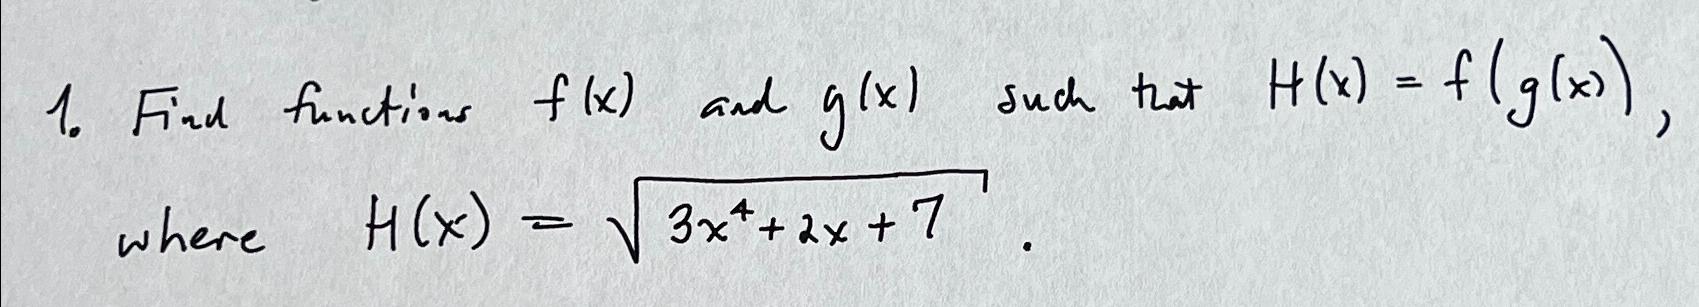 1. Find functions f(x) and g(x) such that H(x) = f(g(x)),
where H(x) = √(3x⁴+2x+7) .